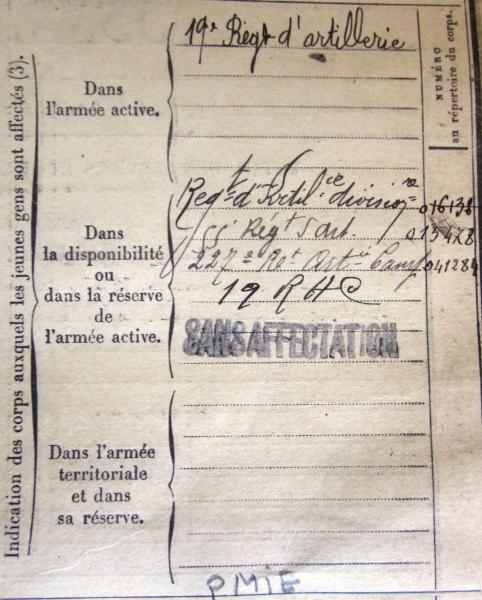 Indication des corps auxquels les jeunes gens sont affectés (3).
NUMÉRO
au répertoire du corps.
19e Régt d'artillerie
Dans
l'armée active.
Regt d'Artilie divisionre 016138
55e Régt d'Art. 013428
227e Rt Artie Camp 041284
19 R H C
Dans
la disponibilité
ou
dans la réserve
de
l'armée active.
SANS AFFECTATION
Dans l'armée
territoriale
et dans
sa réserve.
PMIE